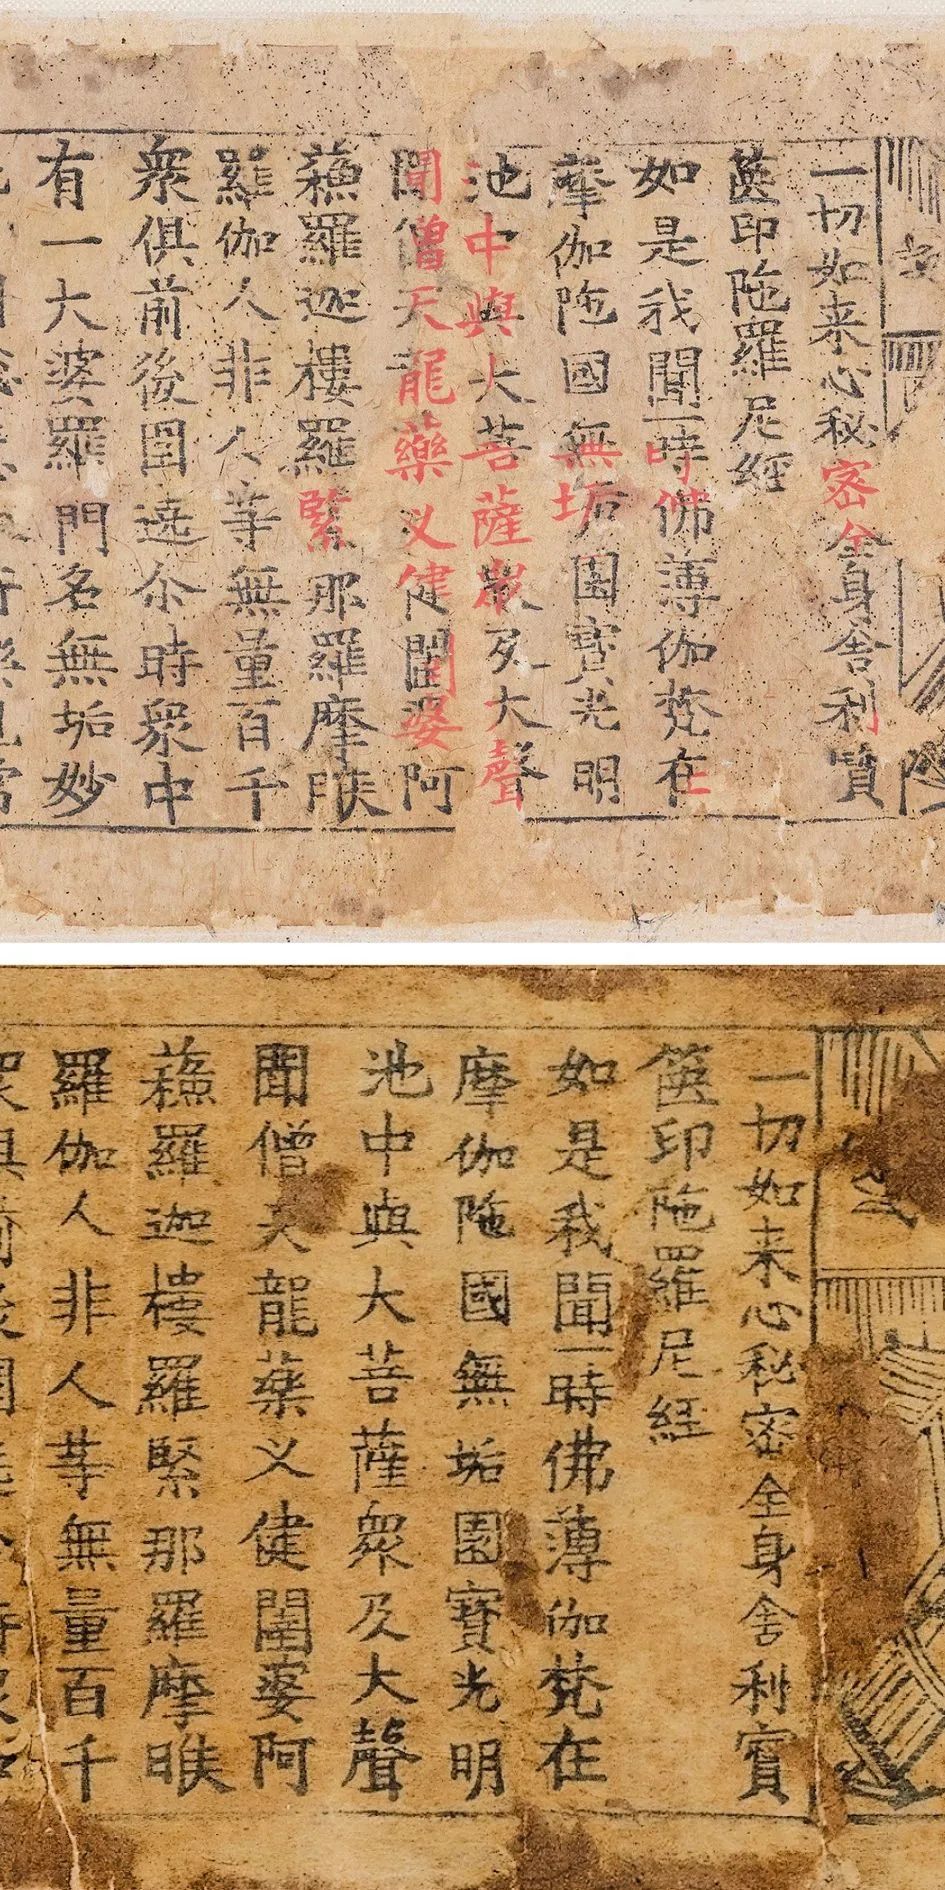 一切如来心秘密全身舍利寶
篋印陁羅尼經
如是我聞一時佛薄伽梵在
摩伽陁國無垢園寶光明
池中與大菩薩衆及大聲
聞僧天龍藥义健闥婆阿
蘓羅迦樓羅緊那羅摩睺
羅伽人非人等無量百千
衆俱前後圍遶尒時衆中
有一大婆羅門名無垢妙
一切如来心秘密全身舍利寶
篋印陁羅尼經
如是我聞一時佛薄伽梵在
摩伽陁國無垢園寶光明
池中與大菩薩衆及大聲
聞僧天龍藥义健闥婆阿
蘓羅迦樓羅緊那羅摩睺
羅伽人非人等無量百千